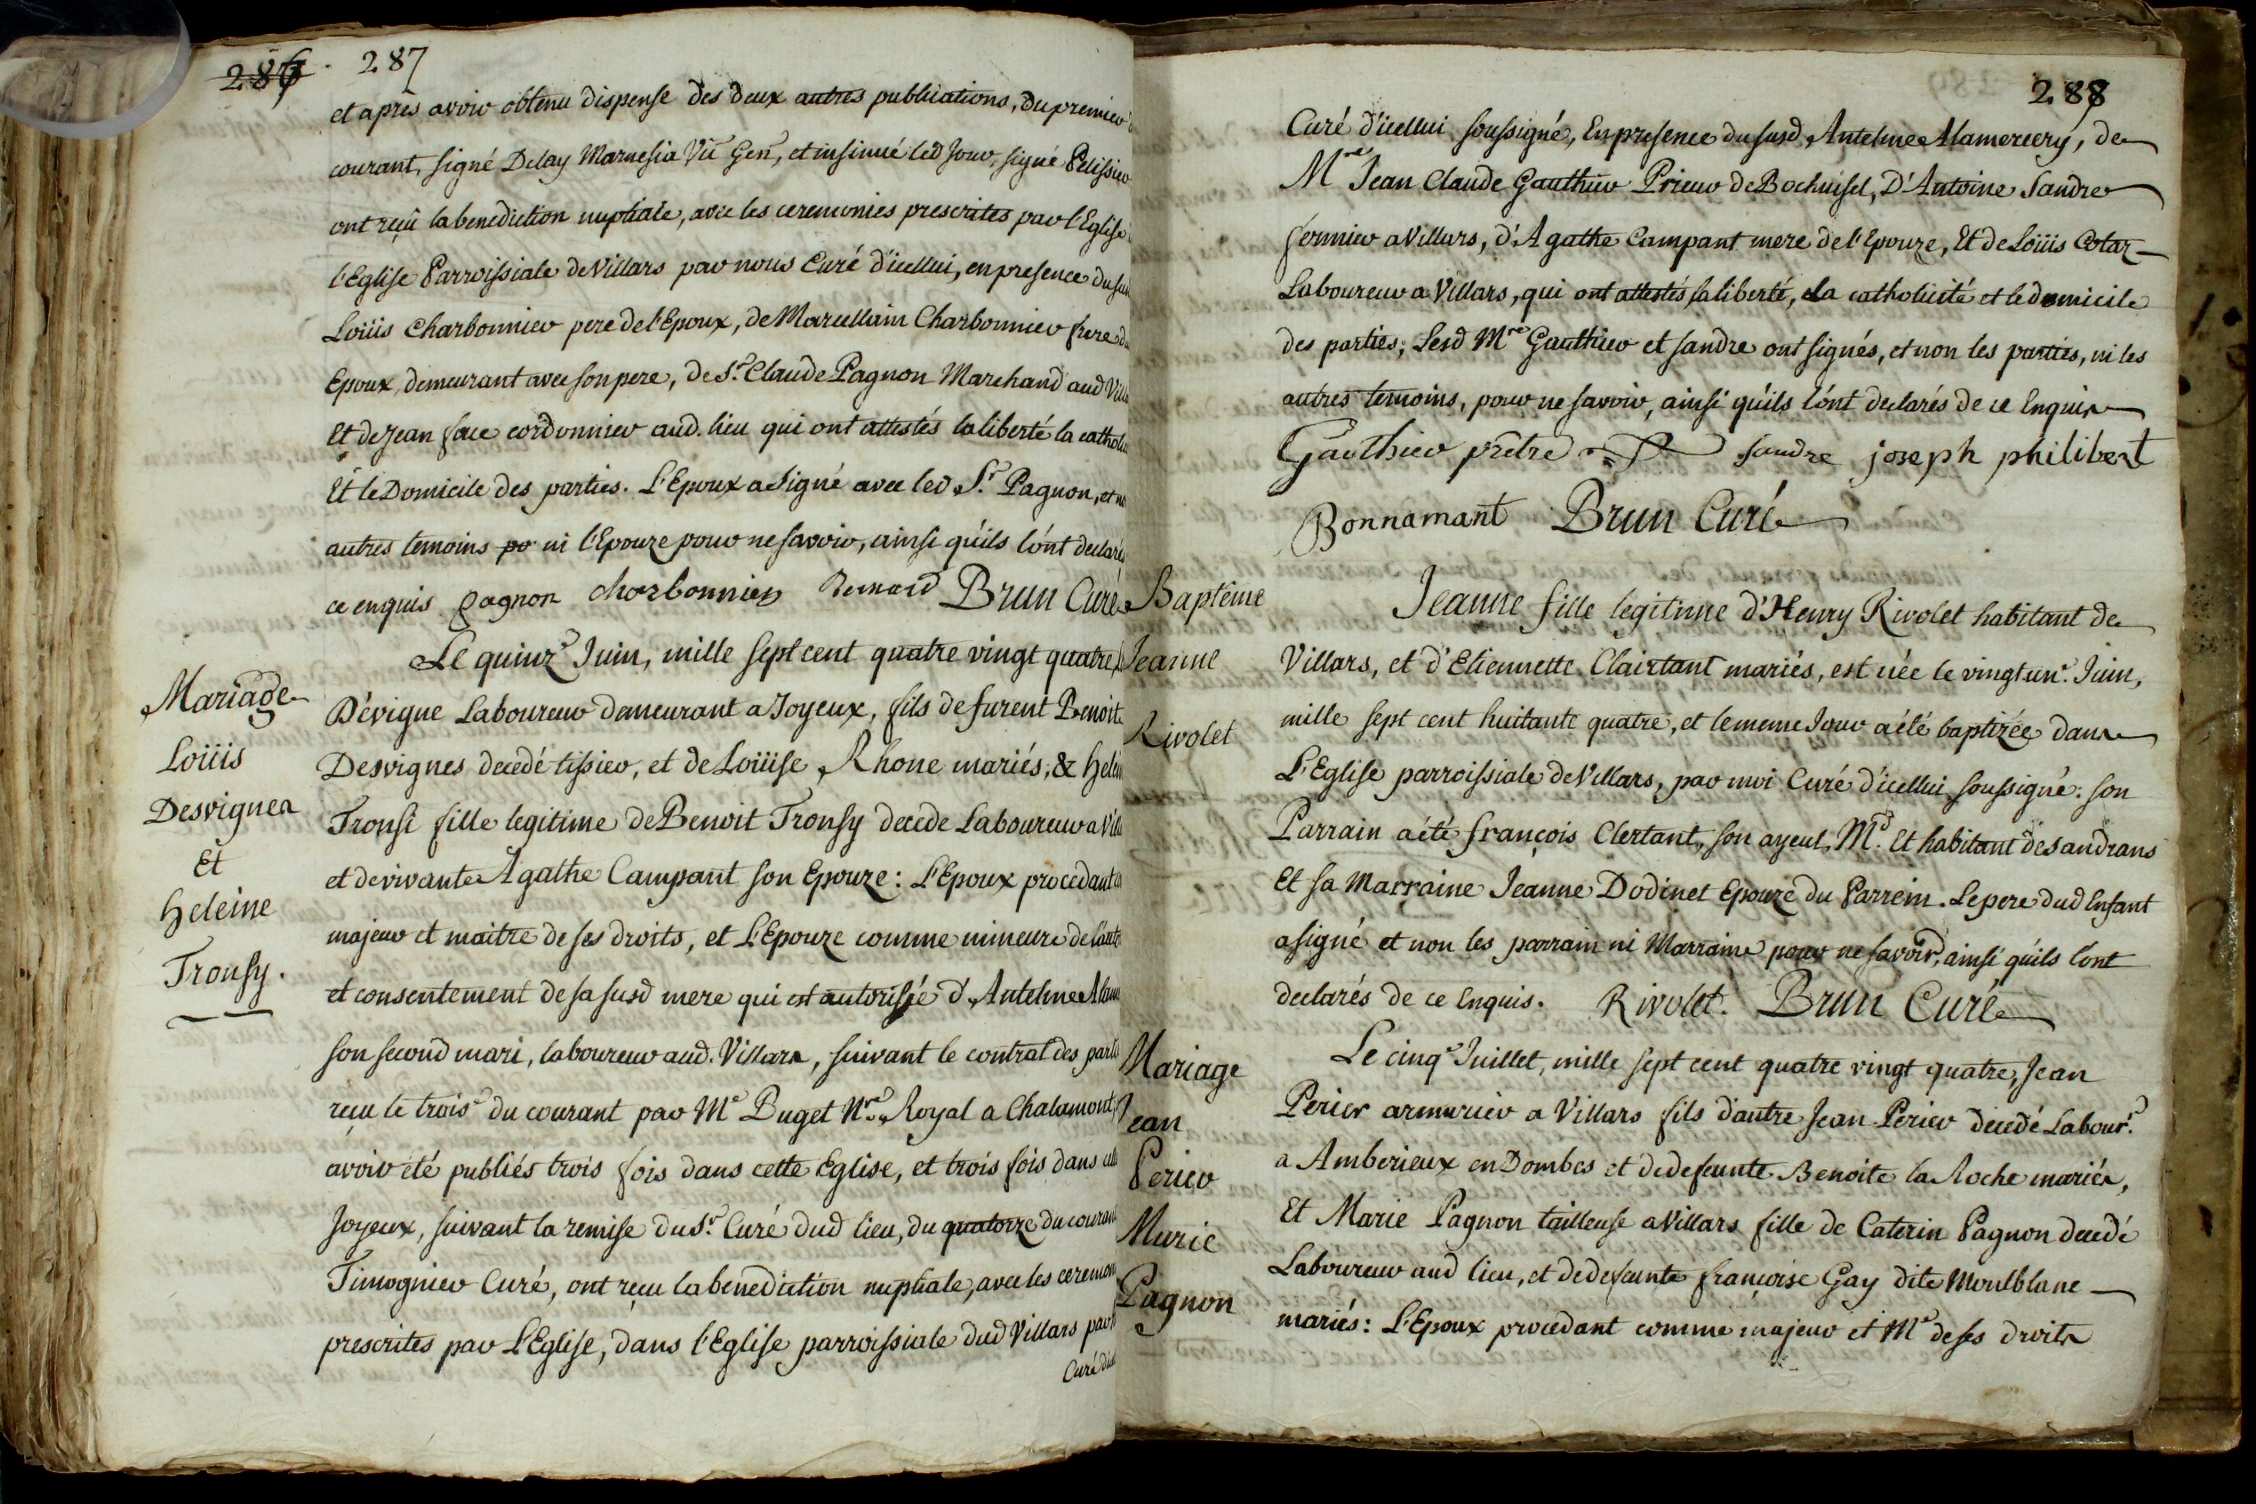 287
et apres avoir obtenu dispense des deux autres publications, du premier
courant, signé Delay Marnesia Vic Gen, et insinué led Jour, signé Pelissier
ont reçu la benediction nuptiale, avec les ceremonies prescrites par l'Eglise
l'Eglise Parroissiale de Villars par nous Curé d'icellui, en presence du
Loüis Charbonnier pere de l'Epoux, de Marcellain Charbonnier frere
Epoux, demeurant avec son pere, de Sr. Claude Pagnon Marchand aud
Et de Jean face cordonnier aud. lieu qui ont attestés la liberté la
Et le Domicile des parties. L'Epoux a Signé avec led Sr. Pagnon, et
autres temoins ni l'Epouze pour ne savoir, ainsi qu'ils l'ont
ce enquis pagnon charbonnier Bernard Brun Curé
Mariage
Loüis
Desvignes
Et
Heleine
Tronsy.
Le quinze Juin, mille sept cent quatre vingt quatre,
Dévigne Laboureur demeurant a Joyeux, fils de furent Benoit
Desvignes decedé tissier, et de Loüise Rhone mariés, &
Tronsi fille legitime de Benoit Tronsy decede Laboureur a
et de vivante Agathe Campant son Epouze: L'Epoux procedant
majeur et maitre de ses droits, et L'Epouze comme mineure de
et consentement de sa susd mere qui est autorisée d'Antelme
son second mari, laboureur aud. Villars, suivant le contrat des
reçu le troise du courant par Me Buget Nre Royal a Chalamont,
avoir été publiés trois fois dans cette Eglise, et trois fois dans
Joyeux, suivant la remise du Sr. Curé dud lieu, du quatorze du
Timognier Curé, ont reçu la benediction nuptiale, avec les
prescrites par L'Eglise, dans l'Eglise parroissiale dud Villars
Curé
288
Curé d'icellui soussigné, En presence du susd Antelme Alamercery, de
Mre Jean Claude Gauthier Prieur de Bochuisel, D'Antoine Sandre
fermier a Villars, d'Agathe Campant mere de l'Epouze, Et de Loüis Cotaz
Laboureur a Villars, qui ont attestés la liberté, la catholicité et le domicile
des parties; Lesd Mre Gauthier et sandre ont signés, et non les parties, ni les
autres temoins, pour ne savoir, ainsi qu'ils l'ont declarés de ce Enquis
Gauthier prêtre sandre joseph philibert
Bonnamant Brun Curé
Baptême
Jeanne
Rivolet
Jeanne fille legitime d'Henry Rivolet habitant de
Villars, et d'Etiennette Clairtant mariés, est née le vingt un. Juin,
mille sept cent huitante quatre, et le meme Jour a été baptizée dans
L'Eglise parroissiale de Villars, par moi Curé d'icellui soussigné. son
Parrain a été françois Clertant, son ayeul, Md. Et habitant de sandrans
Et sa Marraine Jeanne Dodinet Epouze du Parrein. Le pere dud Enfant
a signé et non les parrain ni Marraine pour ne savoir, ainsi qu'ils l'ont
declarés de ce Enquis. Rivolet. Brun Curé
Mariage
Jean
Perier
Marie
Pagnon
Le cinqe Juillet, mille sept cent quatre vingt quatre, Jean
Perier armurier a Villars fils d'autre Jean Perier decedé Labour.
a Amberieux en Dombes et de defeunte Benoite la Roche mariés,
Et Marie Pagnon tailleuse a Villars fille de Caterin Pagnon decedé
Laboureur aud lieu, et de defeunte françoise Gay dite Montblanc
mariés: L'Epoux procedant comme majeur et Me de ses droits